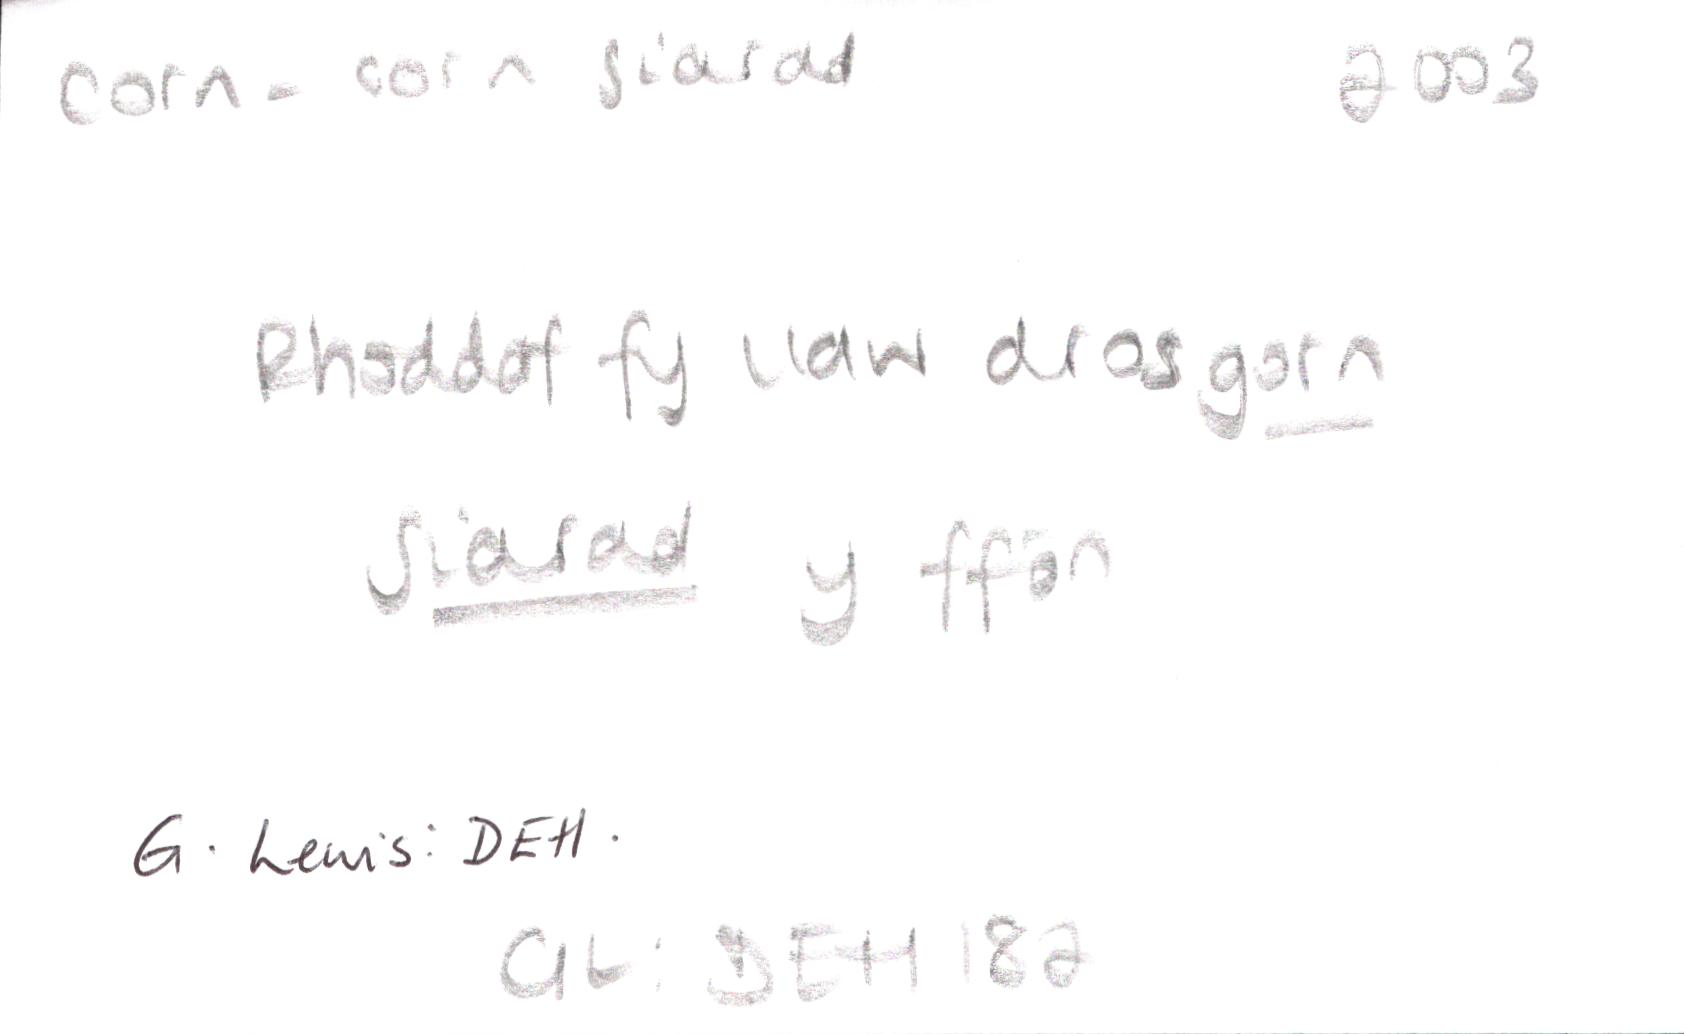 corn - corn siarad 2003
Rhoddof fy llaw dros gorn
siarad y ffôn
G. Lewis: DEH.
GL: DEH 182